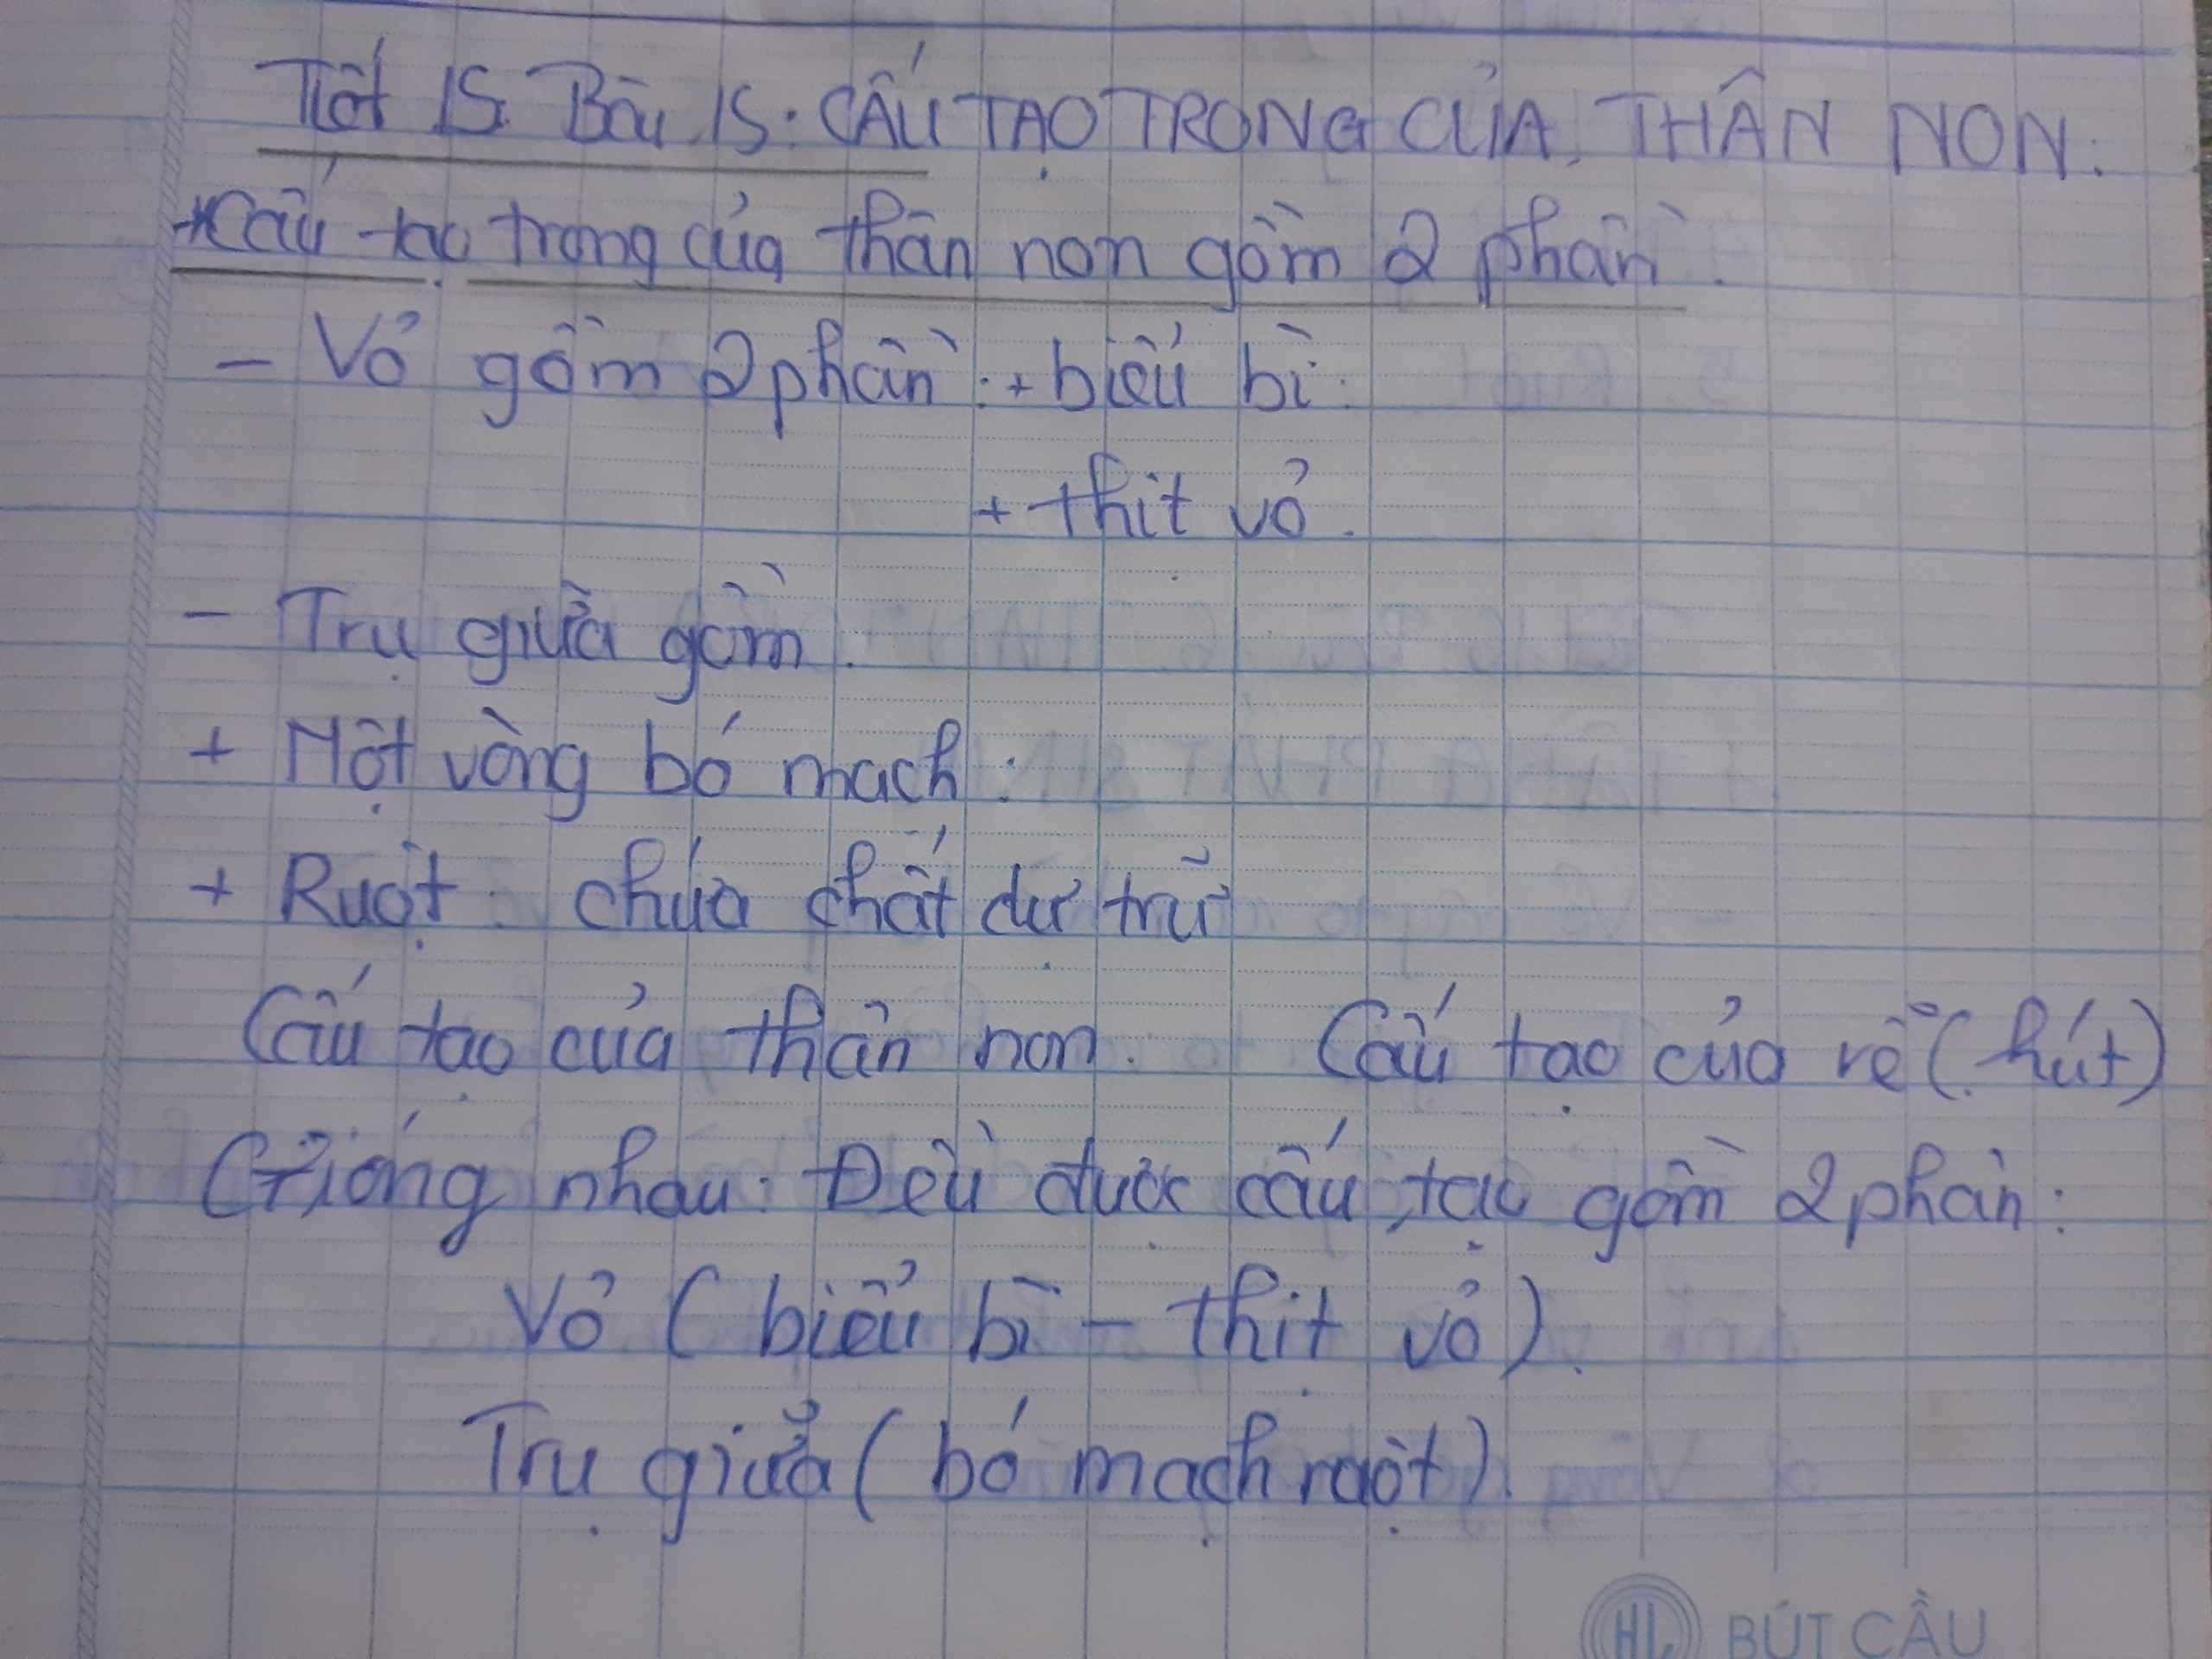 Tiết 15. Bài 15: CẤU TẠO TRONG CỦA THÂN NON.
*Cấu tạo trong của thân non gồm 2 phần.
- Vỏ gồm 2 phần: + biểu bì.
+ thịt vỏ.
- Trụ giữa gồm.
+ Một vòng bó mạch:
+ Ruột: chứa chất dự trữ
Cấu tạo của thân non. Cấu tạo của rễ (hút)
Giống nhau: Đều được cấu tạo gồm 2 phần:
Vỏ (biểu bì - thịt vỏ).
Trụ giữa (bó mạch ruột).
HL BÚT CẦU